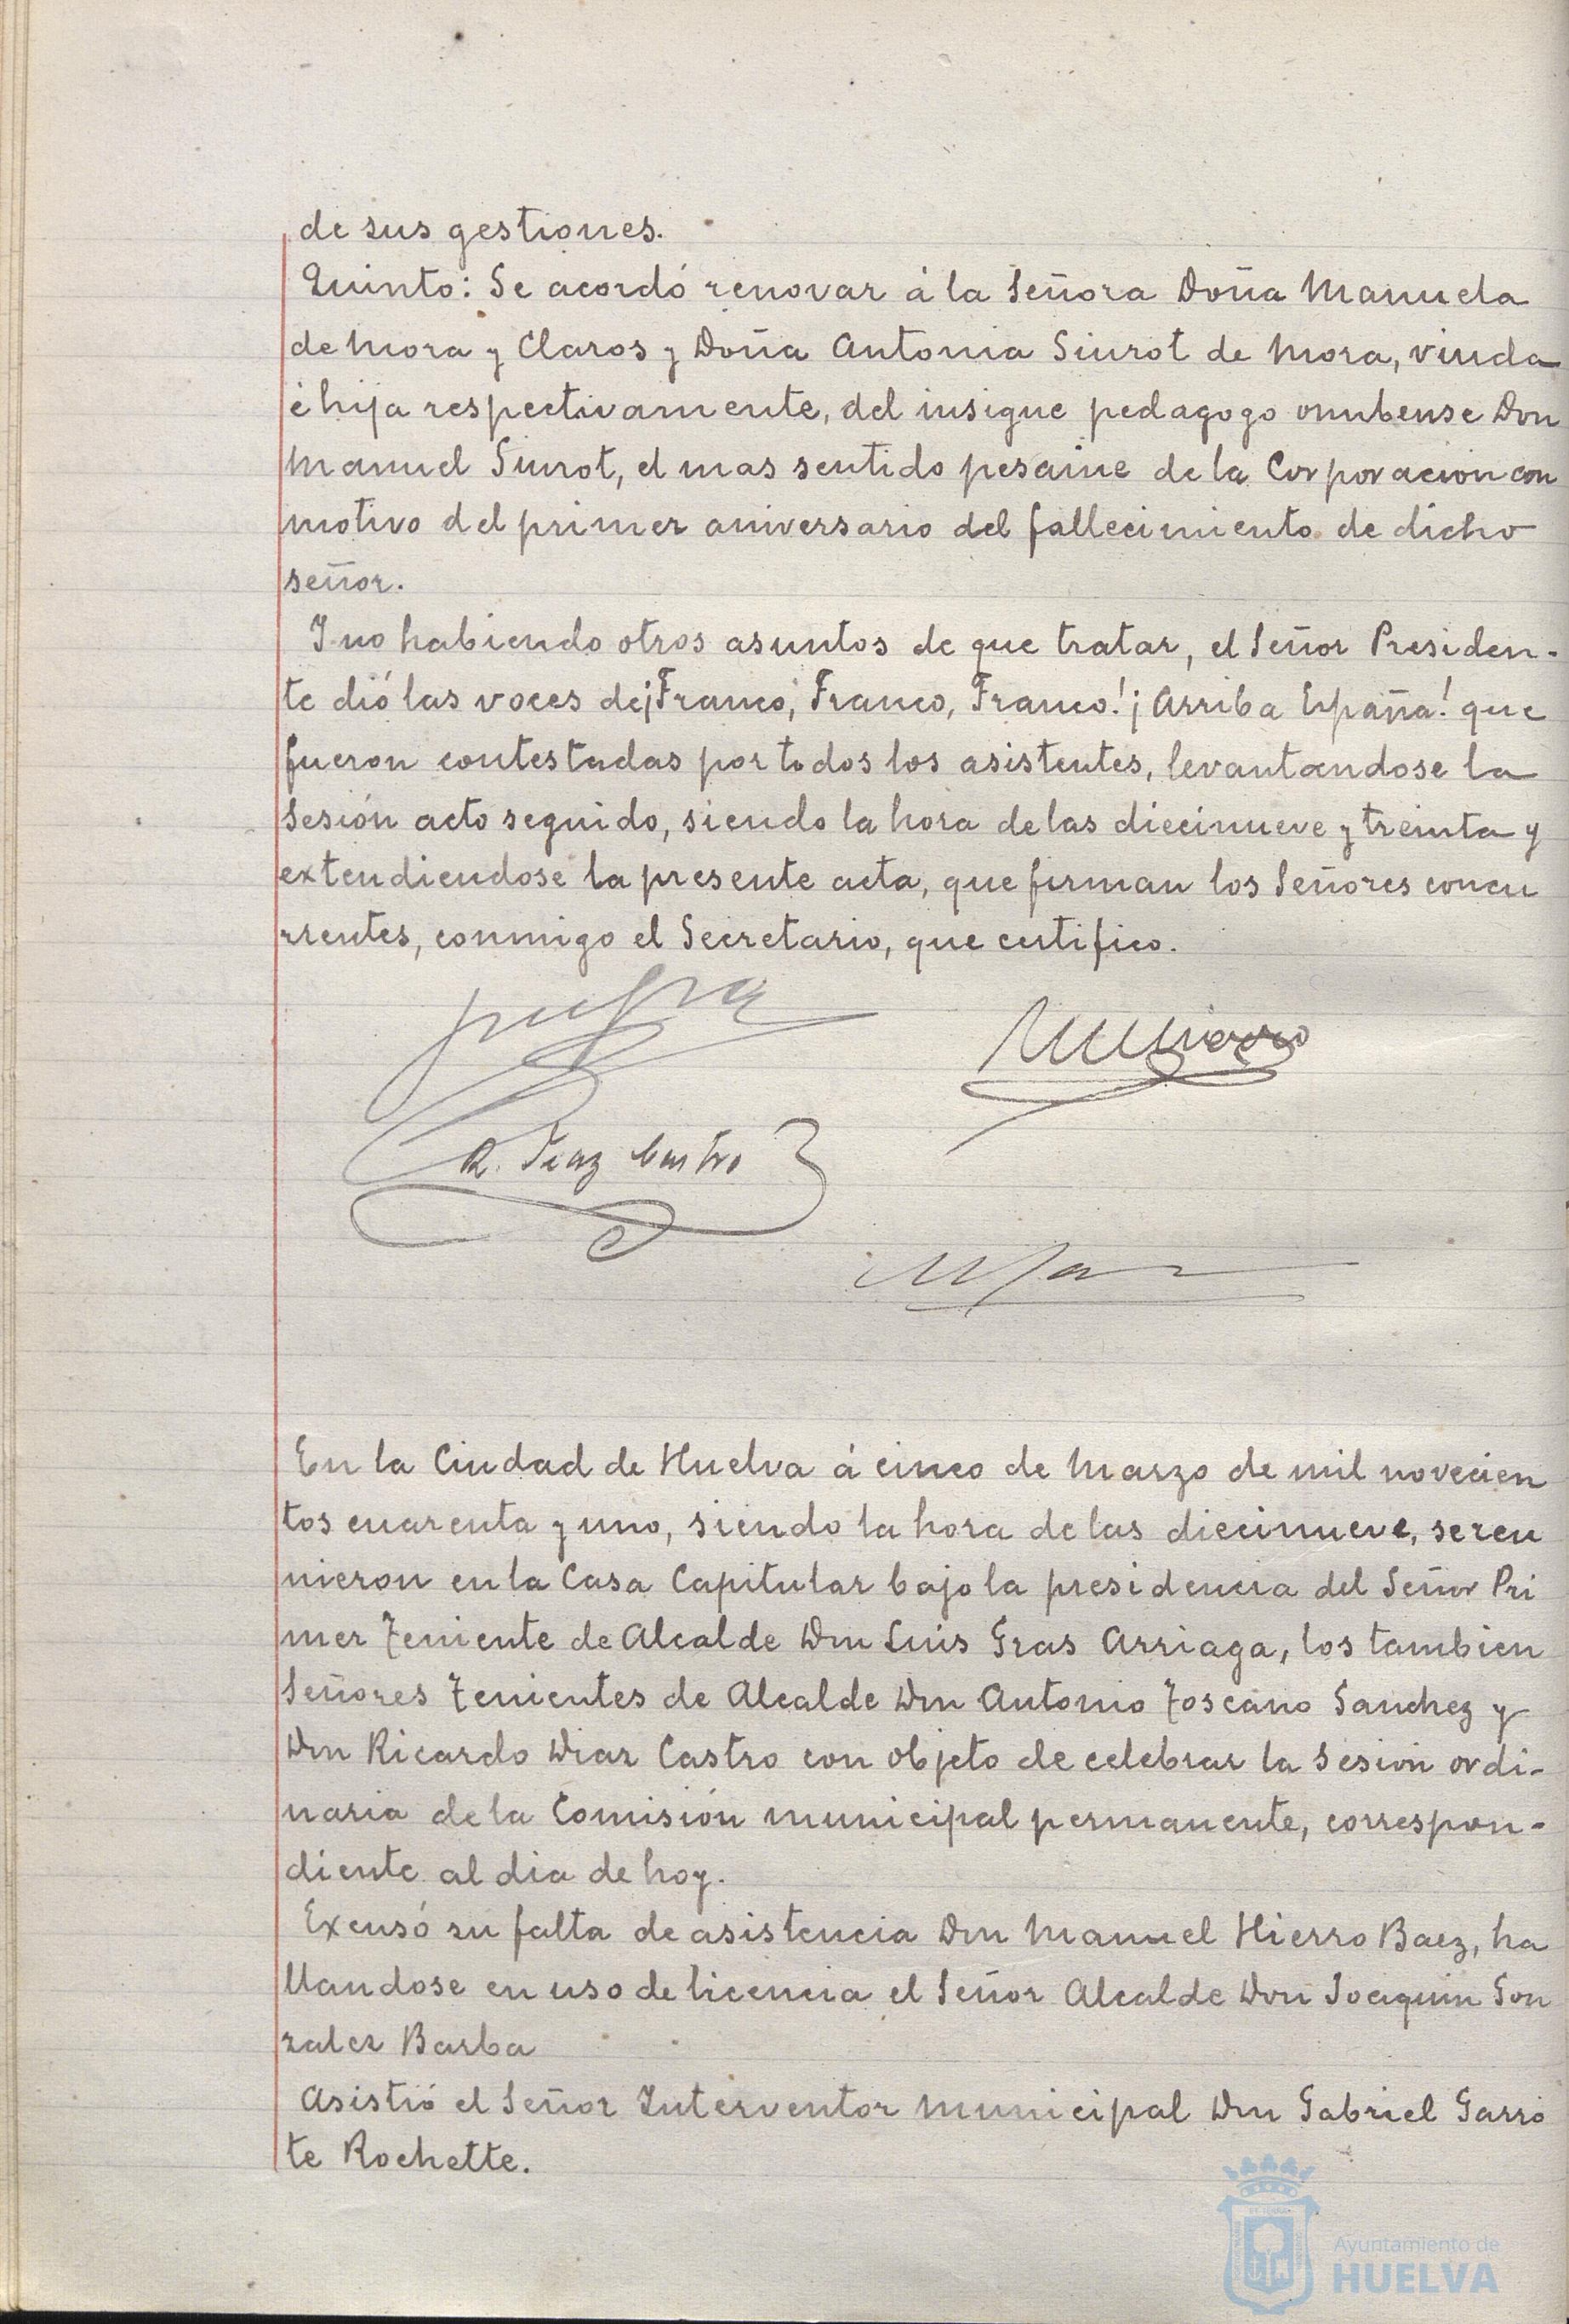 de sus gestiones.
Quinto: Se acordó renovar á la Señora Doña Manuela
de Mora y Claros y Doña Antonia Siurot de Mora, viuda
é hija respectivamente, del insigne pedagogo onubense Don
Manuel Siurot, el mas sentido pesame de la Corporacion con
motivo del primer aniversario del fallecimiento de dicho
señor.
Y no habiendo otros asuntos de que tratar, el Señor Presiden-
te dió las voces de ¡Franco, Franco, Franco! ¡Arriba España! que
fueron contestadas por todos los asistentes, levantandose la
Sesión acto seguido, siendo la hora de las diecinueve y treinta y
extendiendose la presente acta, que firman los Señores concu
rrentes, conmigo el Secretario, que certifico.
R. Diaz Castro
En la Ciudad de Huelva á cinco de Marzo de mil novecien
tos cuarenta y uno, siendo la hora de las diecinueve, se reu
nieron en la Casa Capitular bajo la presidencia del Señor Pri
mer Teniente de Alcalde Don Luis Gras Arriaga, los tambien
Señores Tenientes de Alcalde Don Antonio Toscano Sanchez y
Don Ricardo Diaz Castro con objeto de celebrar la Sesion ordi-
naria de la Comisión municipal permanente, correspon-
diente al dia de hoy.
Excusó su falta de asistencia Don Manuel Hierro Baez, ha
llandose en uso de licencia el Señor Alcalde Don Joaquin Gon
zalez Barba
Asistió el Señor Interventor Municipal Don Gabriel Garro
te Rochette.
Ayuntamiento de
HUELVA